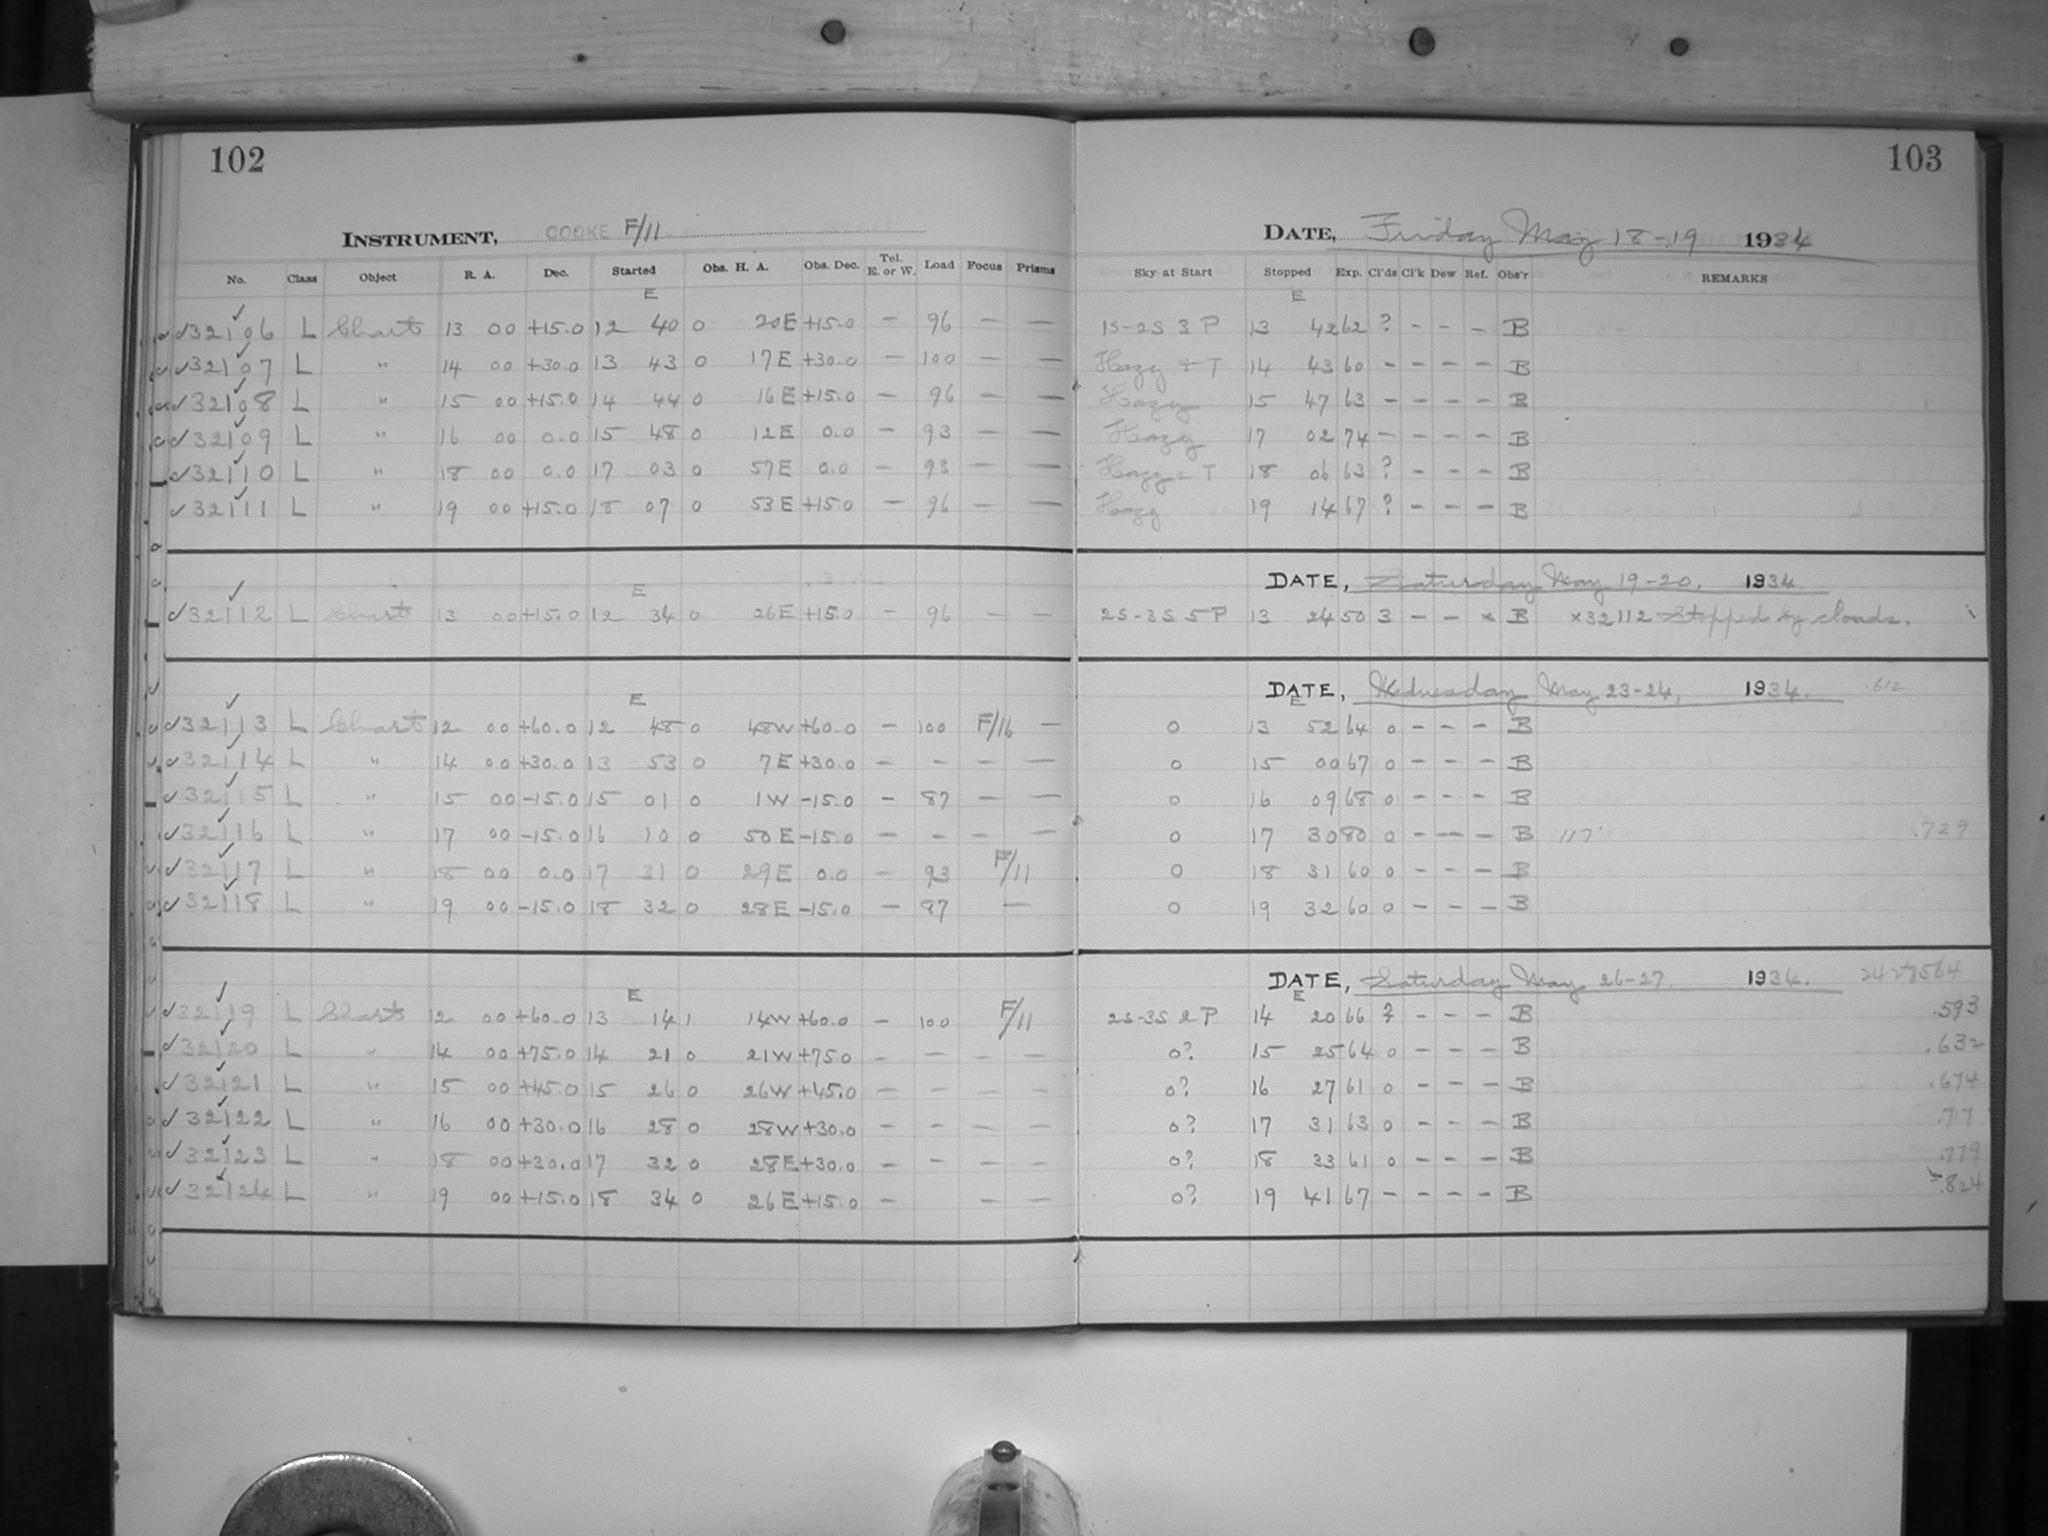 102
INSTRUMENT, COOKE F/11
No. Class Object R. A. Dec. Started Obs. H. A. Obs. Dec. Tel. E. or W. Load Focus Prisms
E
32106 L Chart 13 00 +15.0 12 40 0 20E +15.0 — 96 — —
32107 L " 14 00 +30.0 13 43 0 17E +30.0 — 100 — —
32108 L " 15 00 +15.0 14 44 0 16E +15.0 — 96 — —
32109 L " 16 00 0.0 15 48 0 12E 0.0 — 93 — —
32110 L " 18 00 0.0 17 03 0 57E 0.0 — 93 — —
32111 L " 19 00 +15.0 18 07 0 53E +15.0 — 96 — —
E
32112 L Chart 13 00 +15.0 12 34 0 26E +15.0 — 96 — —
E
32113 L Chart 12 00 +60.0 12 48 0 48W +60.0 — 100 F/16 —
32114 L " 14 00 +30.0 13 53 0 7E +30.0 — — — —
32115 L " 15 00 -15.0 15 01 0 1W -15.0 — 87 — —
32116 L " 17 00 -15.0 16 10 0 50E -15.0 — — — —
32117 L " 18 00 0.0 17 31 0 29E 0.0 — 93 F/11
32118 L " 19 00 -15.0 18 32 0 28E -15.0 — 87 —
E
32119 L Chart 12 00 +60.0 13 14 1 14W +60.0 — 100 F/11
32120 L " 14 00 +75.0 14 21 0 21W +75.0 — — — —
32121 L " 15 00 +45.0 15 26 0 26W +45.0 — — — —
32122 L " 16 00 +30.0 16 28 0 28W +30.0 — — — —
32123 L " 18 00 +30.0 17 32 0 28E +30.0 — — — —
32124 L " 19 00 +15.0 18 34 0 26E +15.0 — — —
103
DATE, Friday May 18-19 1934
Sky at Start Stopped Exp. Cl'ds Cl'k Dew Ref. Obs'r REMARKS
E
1S-2S 3 P 13 42 62 ? - - - B
Hazy + T 14 43 60 - - - - B
Hazy 15 47 63 - - - - B
Hazy 17 02 74 - - - - B
Hazy + T 18 06 63 ? - - - B
Hazy 19 14 67 ? - - - B
DATE, Saturday May 19-20, 1934
2S-3S 5 P 13 24 50 3 - - x B x32112 Stopped by clouds.
DATE, Wednesday May 23-24, 1934. .612
E
0 13 52 64 0 - - - B
0 15 00 67 0 - - - B
0 16 09 68 0 - - - B
0 17 30 80 0 - - - B 117 .729
0 18 31 60 0 - - - B
0 19 32 60 0 - - - B
DATE, Saturday May 26-27. 1934.
E
2S-3S 2 P 14 20 66 ? - - - B .593
0? 15 25 64 0 - - - B .632
0? 16 27 61 0 - - - B .674
0? 17 31 63 0 - - - B .717
0? 18 33 61 0 - - - B .779
0? 19 41 67 - - - - B .824